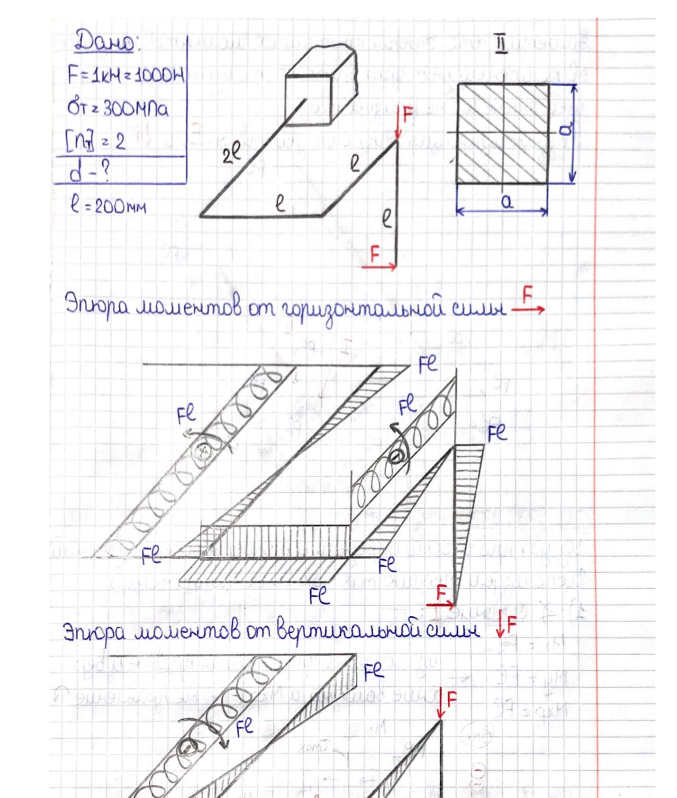 Дано:
II
F=1кН=1000Н
F
σт=300МПа
[nт]=2
2l
l
a
d-?
l
l
l=200мм
a
F
Эпюра моментов от горизонтальной силы F
Fl
Fl
Fl
Fl
Fl
Fl
Fl
F
Эпюра моментов от вертикальной силы F
Fl
F
Fl